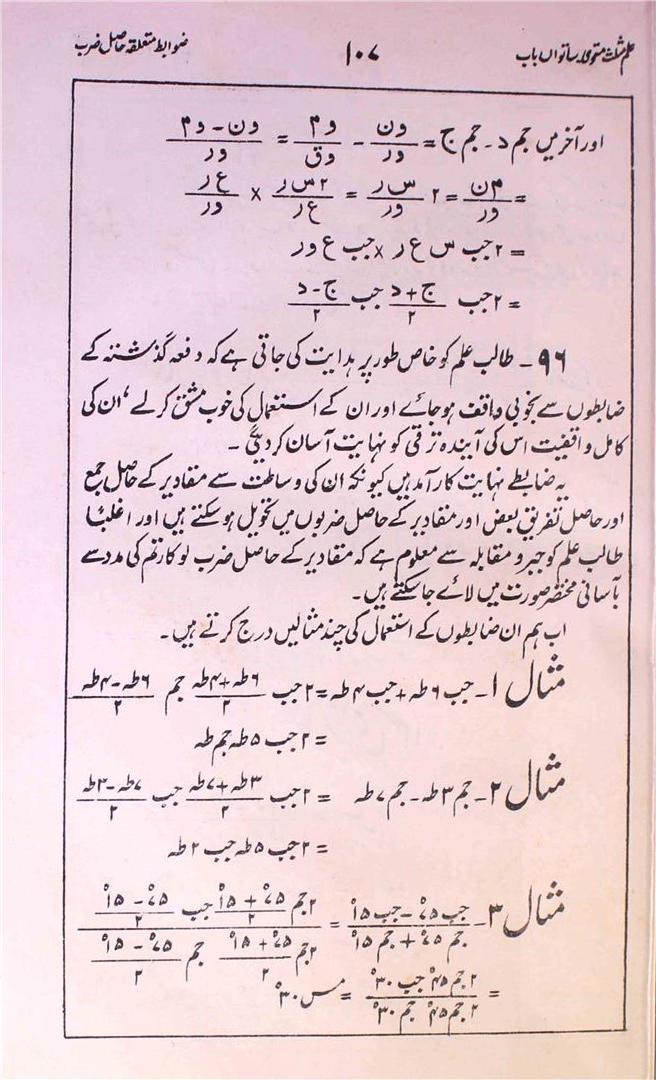 علم مثلث مستوی ۔ ساتواں باب ۱۰۷ ضوابط متعلقہ حاصل ضرب
اور آخر میں جم د - جم ج = ون/ور - وم/وق = (ون - وم)/ور
= من/ور = ۲ س ر/ور = ۲ س ر/ع ر × ع ر/ور
= ۲ جب س ع ر × جب ع و ر
= ۲ جب (ج + د)/۲ جب (ج - د)/۲
۹۶ - طالب علم کو خاص طور پر ہدایت کی جاتی ہے کہ دفعہ گذشتہ کے
ضابطوں سے بخوبی واقف ہو جائے اور ان کے استعمال کی خوب مشق کرلے، ان کی
کامل واقفیت اس کی آیندہ ترقی کو نہایت آسان کردیگی ۔
یہ ضابطے نہایت کار آمد ہیں کیونکہ ان کی وساطت سے مقادیر کے حاصل جمع
اور حاصل تفریق بعض اور مقادیر کے حاصل ضربوں میں تحویل ہوسکتے ہیں اور اغلباً
طالب علم کو جبر و مقابلہ سے معلوم ہے کہ مقادیر کے حاصل ضرب لوکارتم کی مدد سے
بآسانی مختصر صورت میں لائے جاسکتے ہیں ۔
اب ہم ان ضابطوں کے استعمال کی چند مثالیں درج کرتے ہیں ۔
مثال ۱ - جب ۶ طہ + جب ۴ طہ = ۲ جب (۶ طہ + ۴ طہ)/۲ جم (۶ طہ - ۴ طہ)/۲
= ۲ جب ۵ طہ جم طہ
مثال ۲ - جم ۳ طہ - جم ۷ طہ = ۲ جب (۳ طہ + ۷ طہ)/۲ جب (۷ طہ - ۳ طہ)/۲
= ۲ جب ۵ طہ جب ۲ طہ
مثال ۳ - (جب ۷۵° - جب ۱۵°)/(جم ۷۵° + جم ۱۵°) = (۲ جم (۷۵° + ۱۵°)/۲ جب (۷۵° - ۱۵°)/۲)/(۲ جم (۷۵° + ۱۵°)/۲ جم (۷۵° - ۱۵°)/۲)
= (۲ جم ۴۵° جب ۳۰°)/(۲ جم ۴۵° جم ۳۰°) = مس ۳۰°